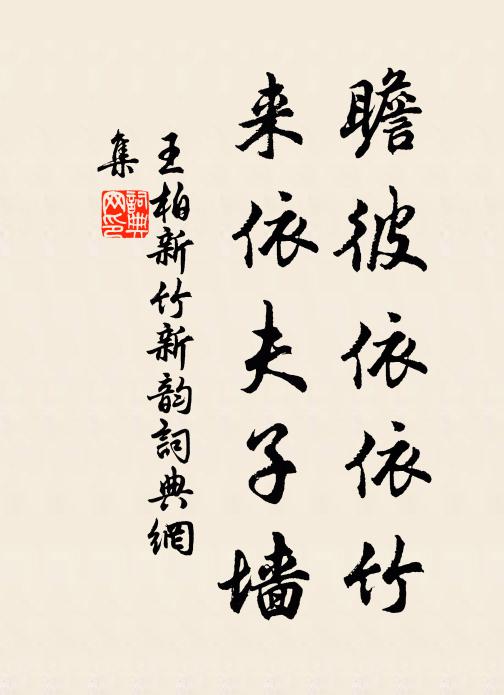 瞻彼依依竹
来依夫子墙
王柏新竹新韵詞典網
集
詞典
网印